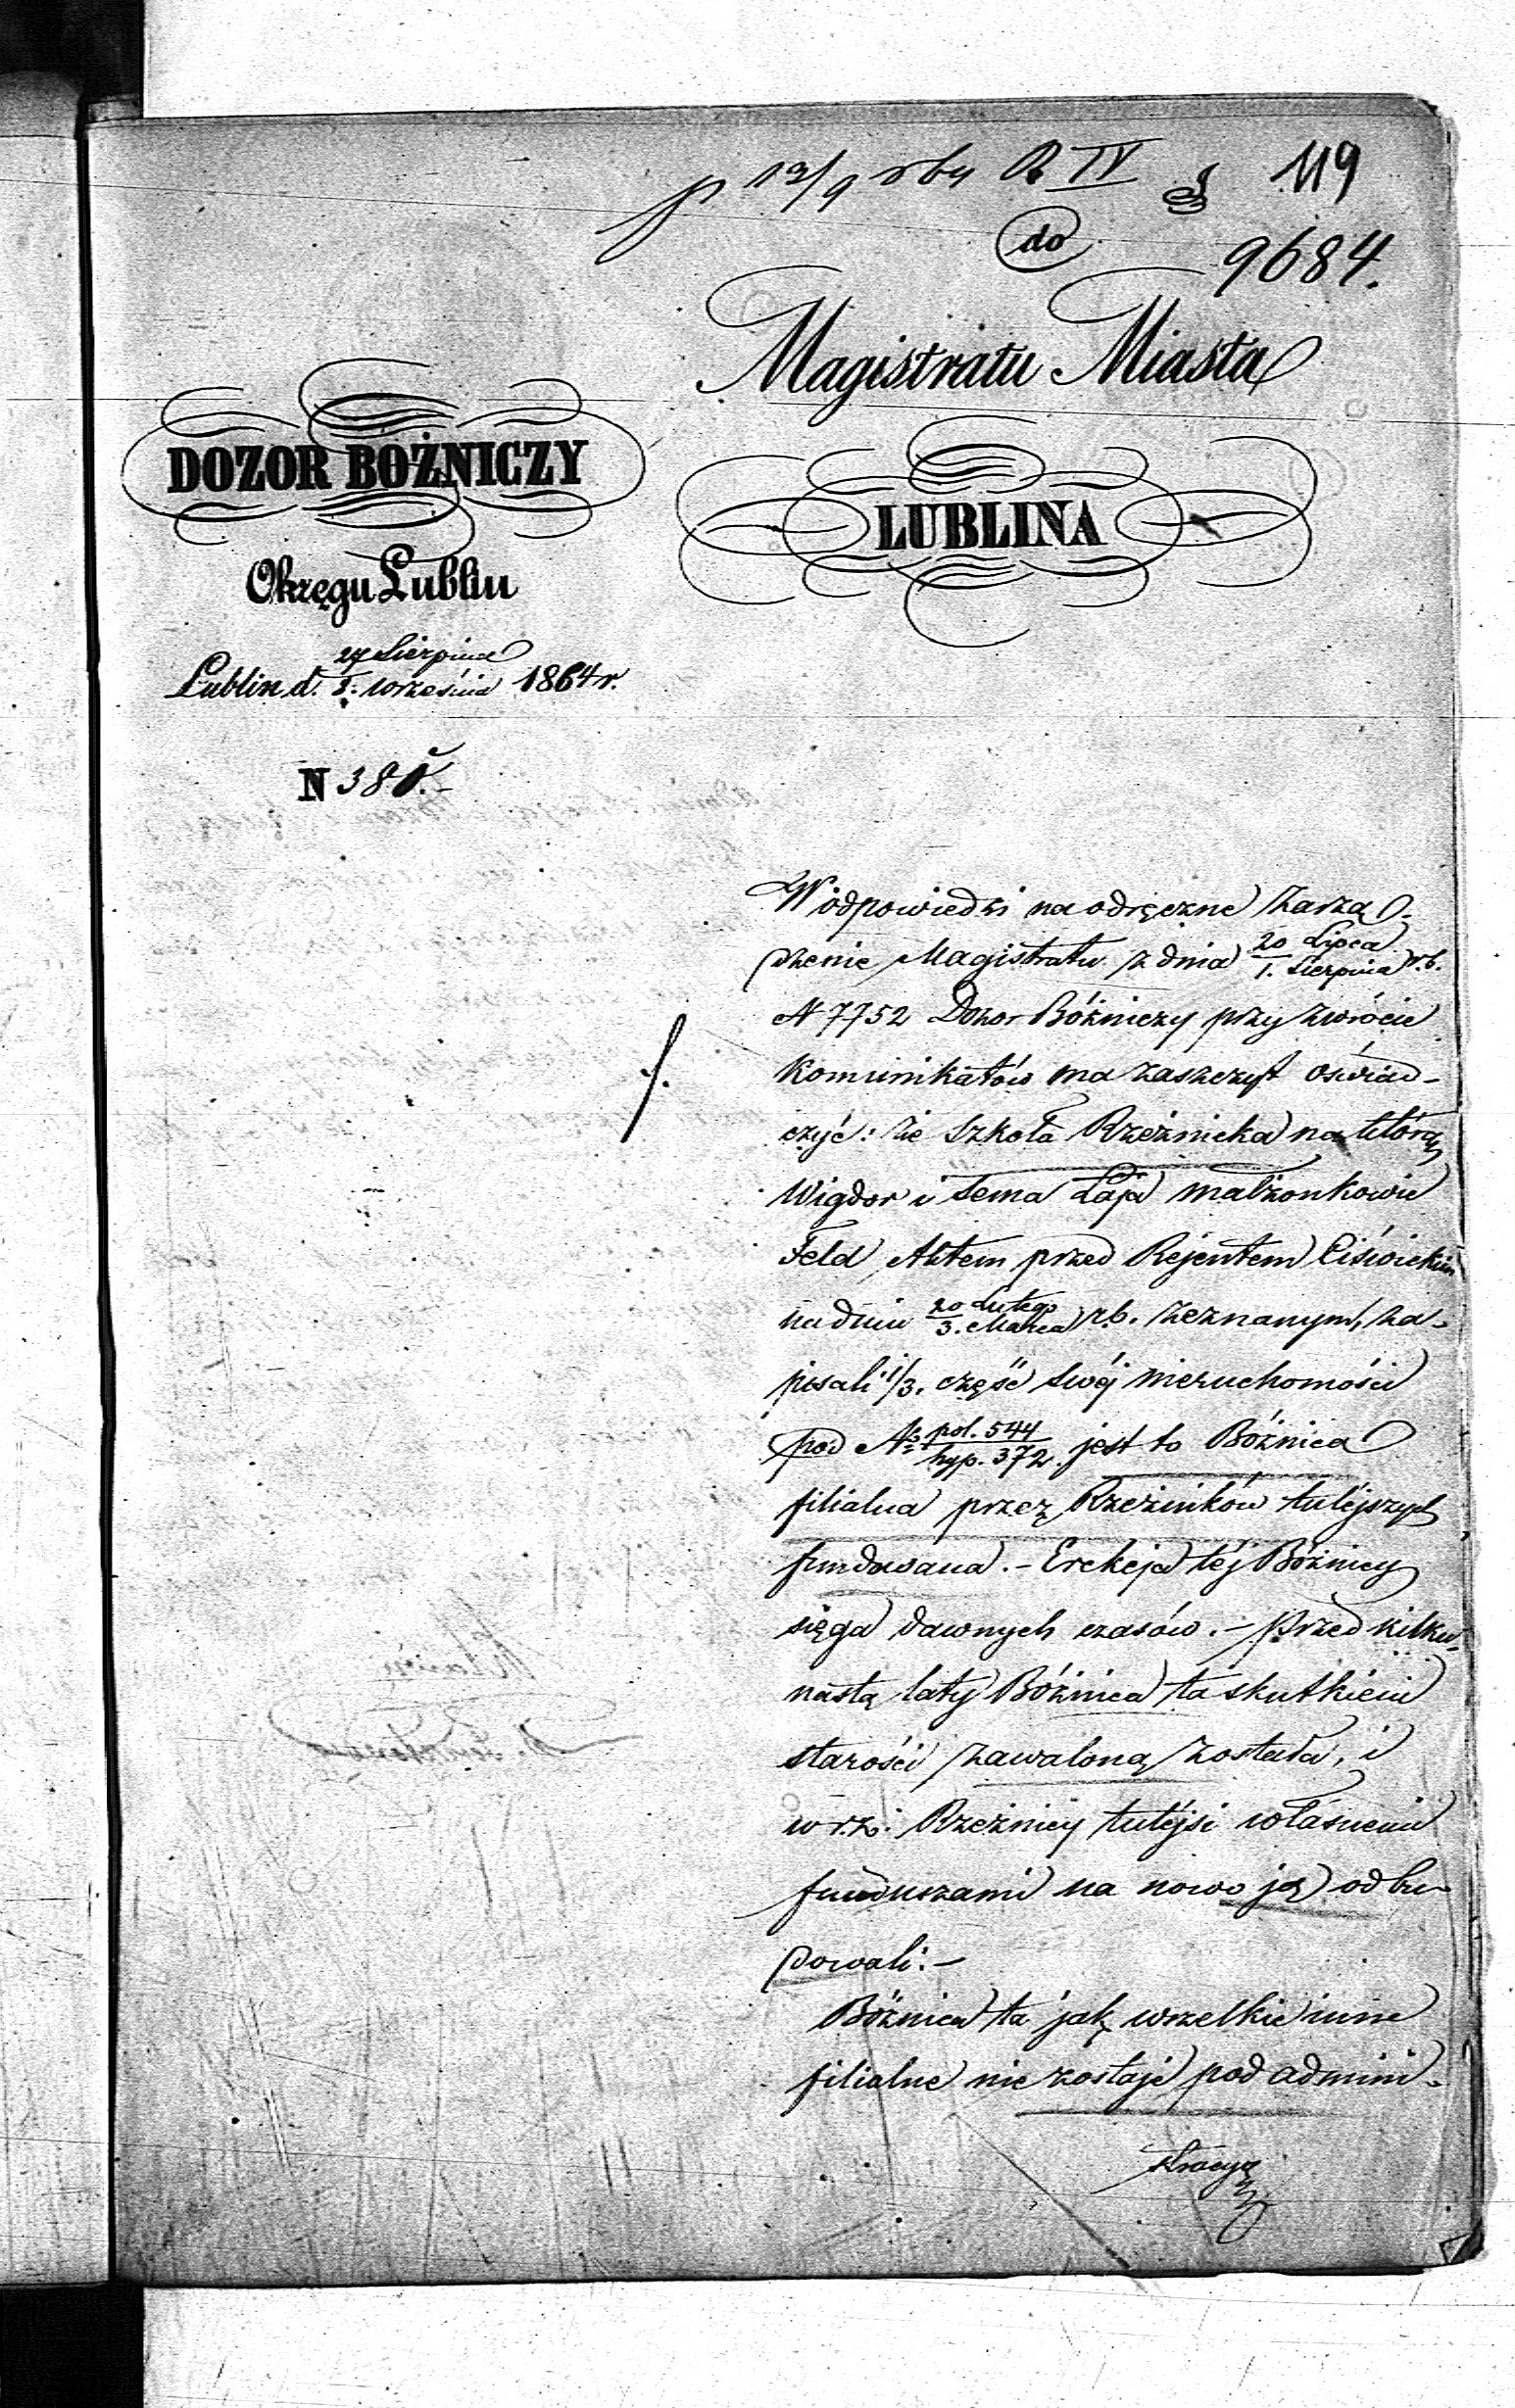 p 13/9 864 R IV 119
do
9684.
Magistratu Miasta
LUBLINA
DOZOR BOŻNICZY
Okręgu Lublin
Lublin d. 27 Sierpnia / 8. Września 1864 r.
N 380.-
W odpowiedzi na odręczne Zarzą-
dzenie Magistratu z dnia 20 Lipca / 1. Sierpnia r.b.
N 7752 Dozor Bóżniczy przy zwrócie
Komunikatów ma zaszczyt oświad-
czyć: że Szkoła Rzeźnicka na którą
Wigdor i Sema Łaja małżonkowie
Feld Aktem przed Rejentem Ciświckim
na dniu 20 Lutego / 3. Marca r.b. zeznanym, za-
pisali 1/3. część swéj nieruchomości
pod No pol. 544 / hyp. 372. jest to Bóżnica
filialna przez Rzeźników tutéjszych
fundowana.- Erekcja téj Bóżnicy
sięga dawnych czasów.- Przed kilku-
nastą laty Bóżnica ta skutkiem
starości zawaloną została, i
w r.z. Rzeźnicy tutéjsi własnemi
funduszami na nowo ją odbu-
dowali.-
Bóżnica ta jak wszelkie inne
filialne nie zostaje pod admini-
stracyą